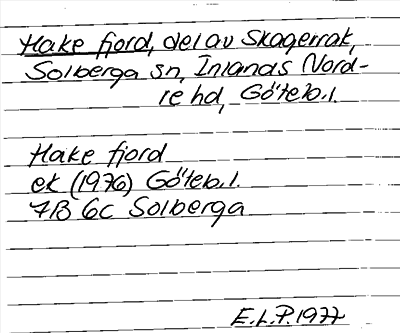 Hake fjord, del av Skagerrak,
Solberga sn, Inlands Nord-
re hd, Göteb.l.
Hake fjord
ek (1976) Göteb.l.
7B 6c Solberga
E.L.P. 1977